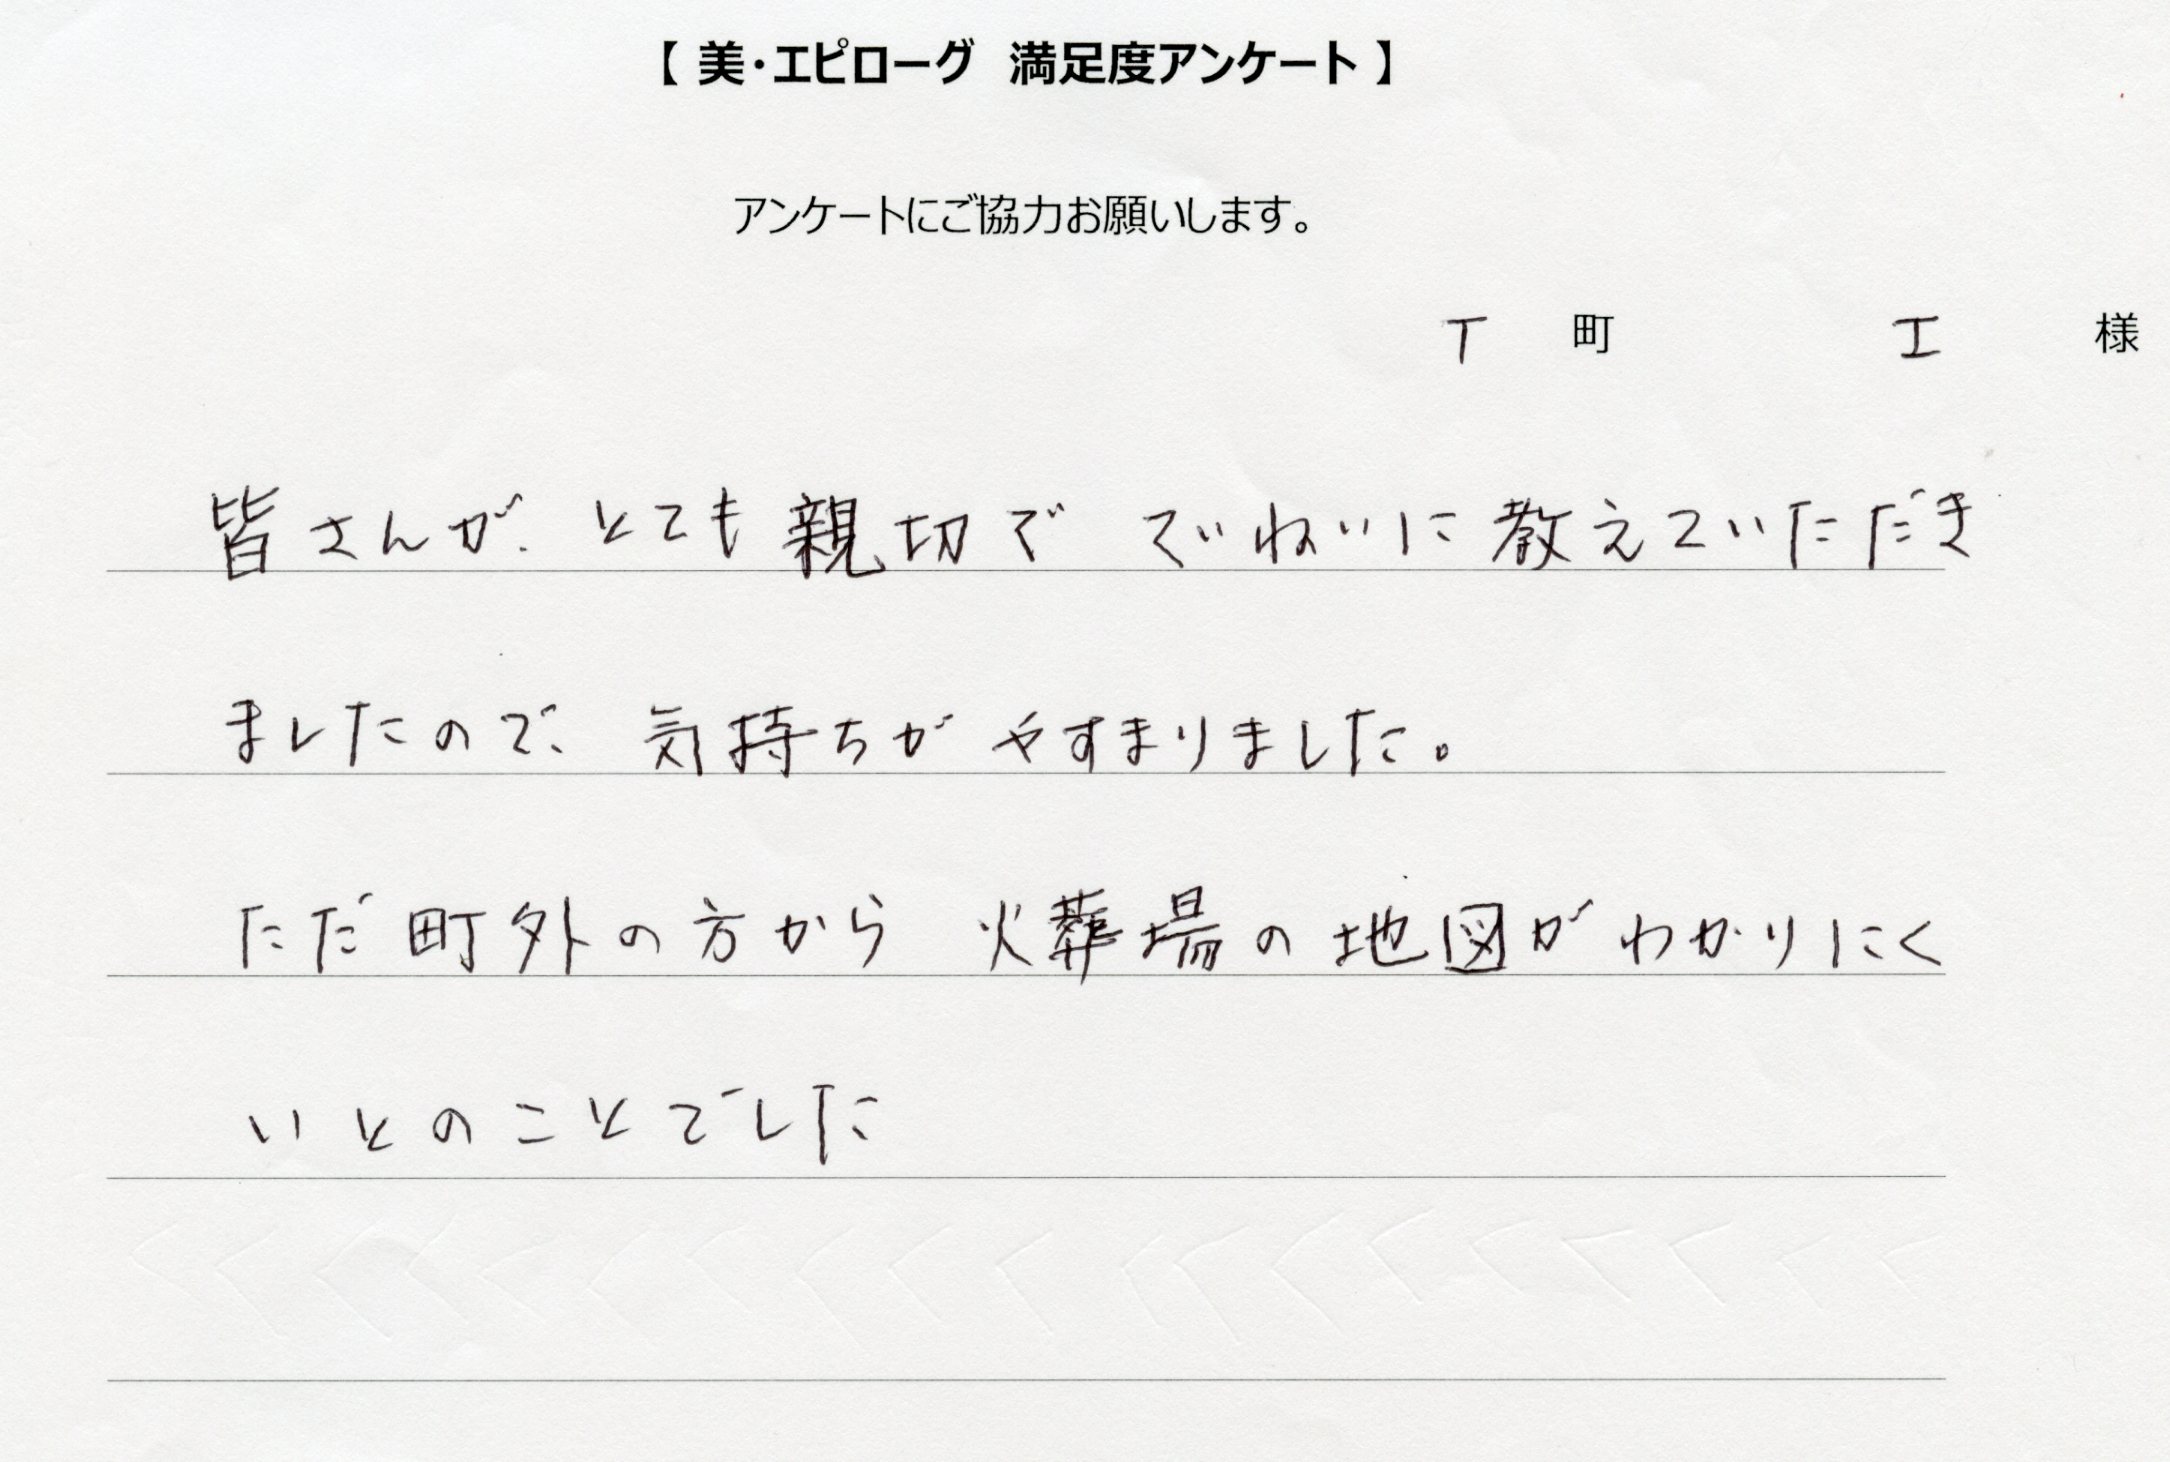 【 美・エピローグ 満足度アンケート 】
アンケートにご協力お願いします。
T 町 I 様
皆さんが、とても親切で ていねいに教えていただき
ましたので、気持ちが やすまりました。
ただ町外の方から 火葬場の地図がわかりにく
いとのことでした